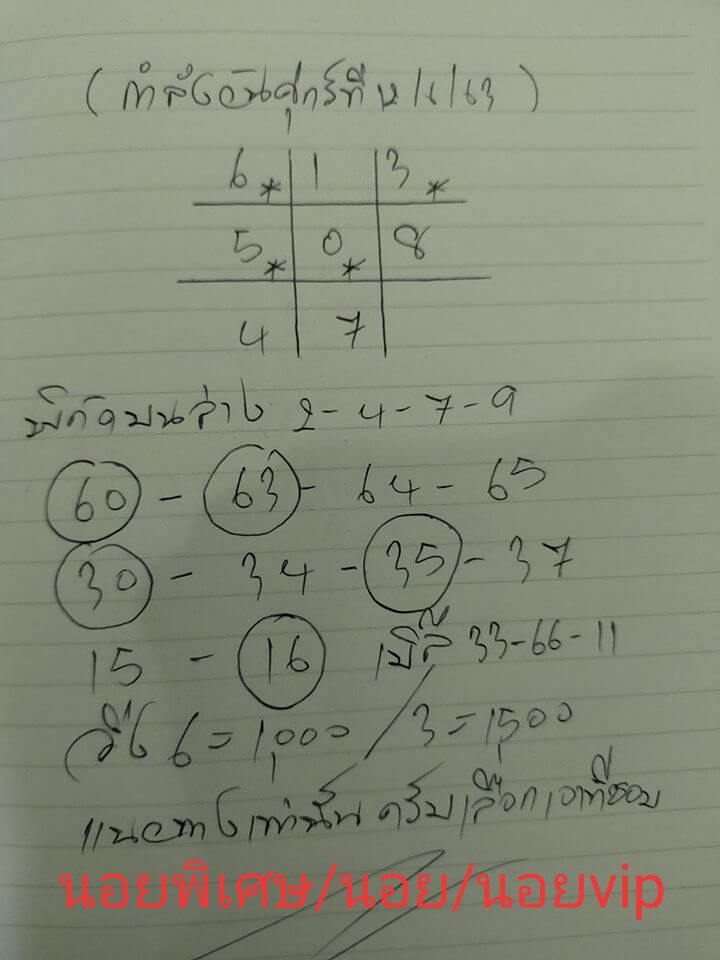 (กำลังวันศุกร์ที่ 12/6/63)
6* 1 3*
5* 0* 8
4 7
พิกัดบนล่าง 2-4-7-9
60 - 63 - 64 - 65
30 - 34 - 35 - 37
15 - 16 เบิ้ล 33-66-11
วิ่ง 6=1,000 / 3=1,500
แนวทางเท่านั้น ครับเลือกเอาที่ชอบ
นอยพิเศษ/นอย/นอยvip